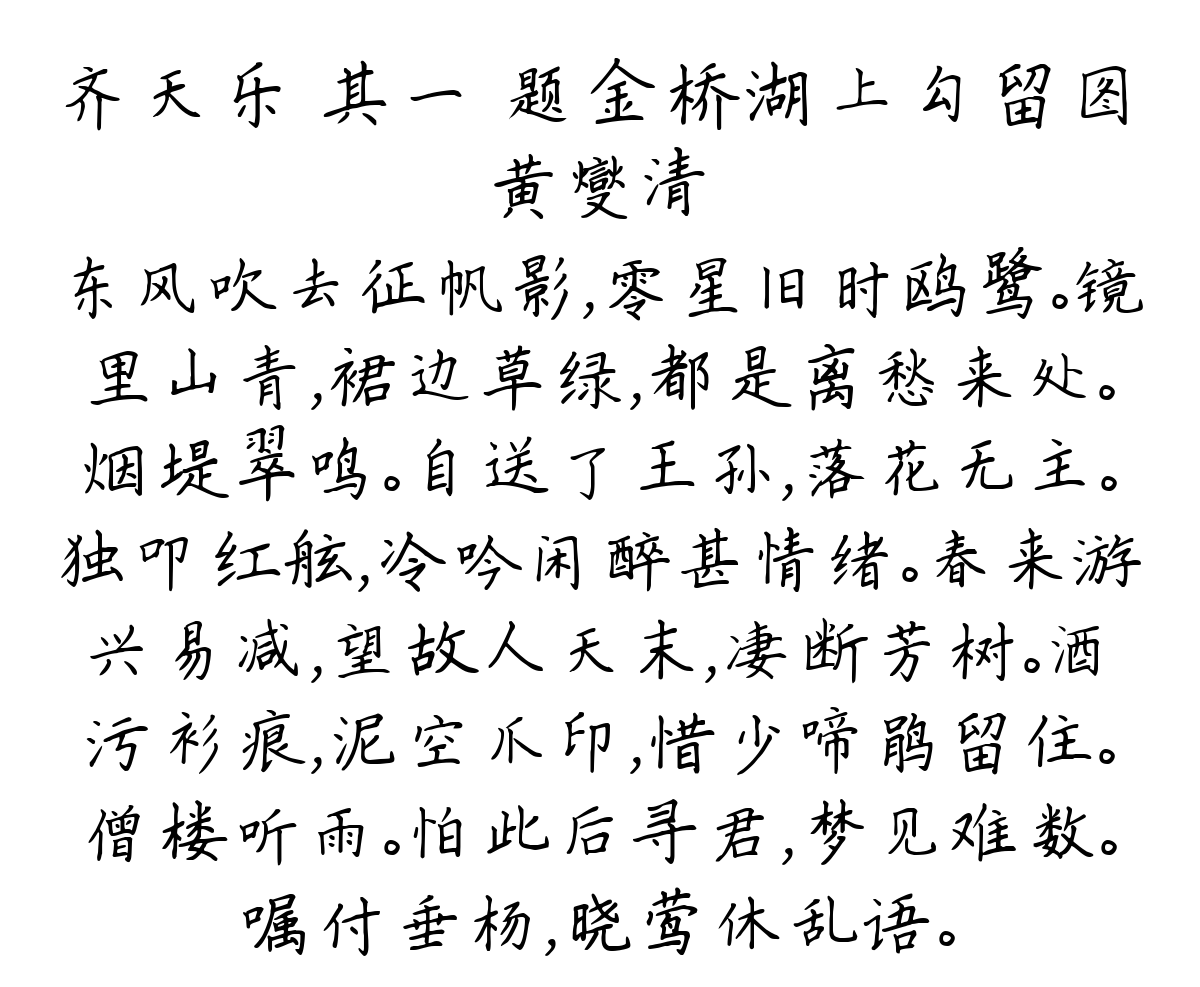 齐天乐 其一 题金桥湖上勾留图
黄燮清
东风吹去征帆影,零星旧时鸥鹭。镜
里山青,裙边草绿,都是离愁来处。
烟堤翠鸣。自送了王孙,落花无主。
独叩红舷,冷吟闲醉甚情绪。春来游
兴易减,望故人天末,凄断芳树。酒
污衫痕,泥空爪印,惜少啼鹃留住。
僧楼听雨。怕此后寻君,梦见难数。
嘱付垂杨,晓莺休乱语。